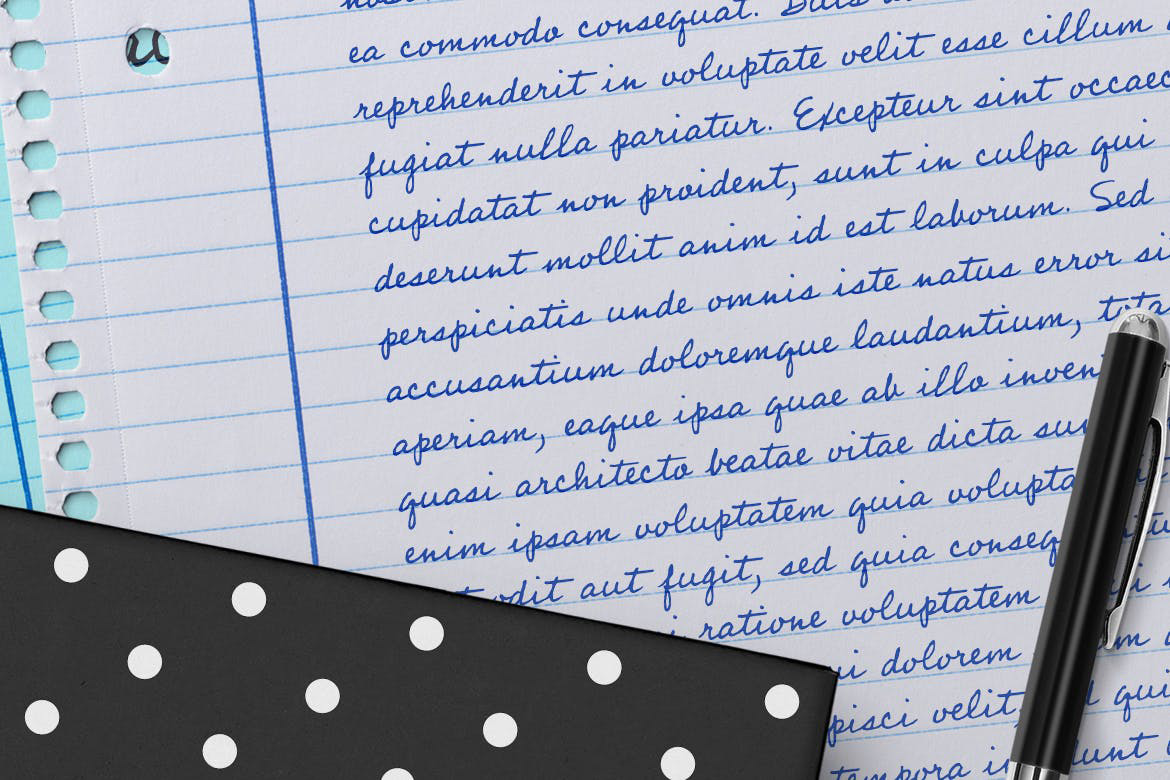 u
ea commodo consequat. Duis
reprehenderit in voluptate velit esse cillum
fugiat nulla pariatur. Excepteur sint occaec
cupidatat non proident, sunt in culpa qui
deserunt mollit anim id est laborum. Sed
perspiciatis unde omnis iste natus error si
accusantium doloremque laudantium, tota
aperiam, eaque ipsa quae ab illo inven
quasi architecto beatae vitae dicta sun
enim ipsam voluptatem quia volupta
odit aut fugit, sed quia conseq
ratione voluptatem
dolorem
pisci velit, qui
tempora in dunt